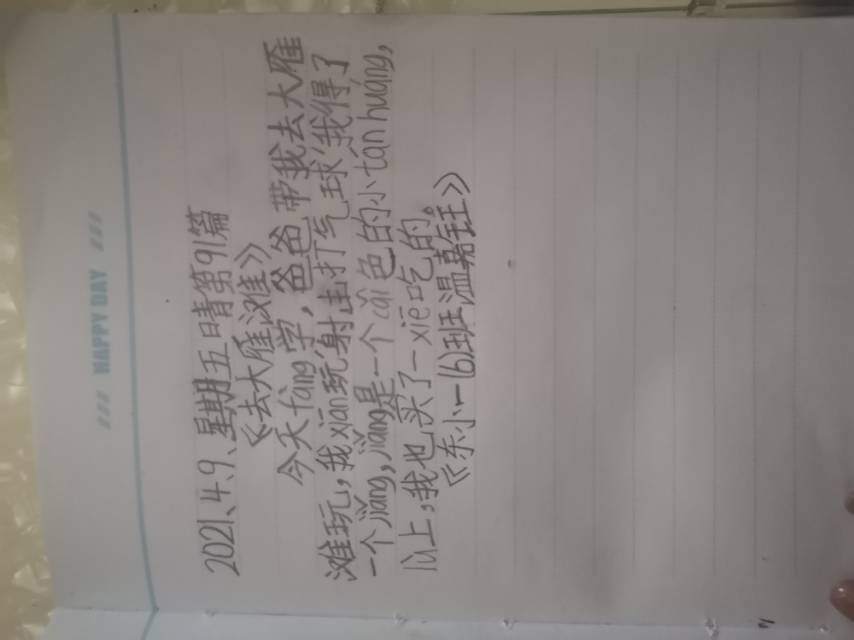 HAPPY DAY
2021、4、9、星期五晴第91篇
《去大雁滩》
今天fàng学，爸爸带我去大雁
滩玩，我xiān玩射击打气球，我得了
一个jiǎng，jiǎng是一个cǎi色的小tán huáng，
以上，我也买了一xiē吃的。
《东小一(6)班温嘉钰》